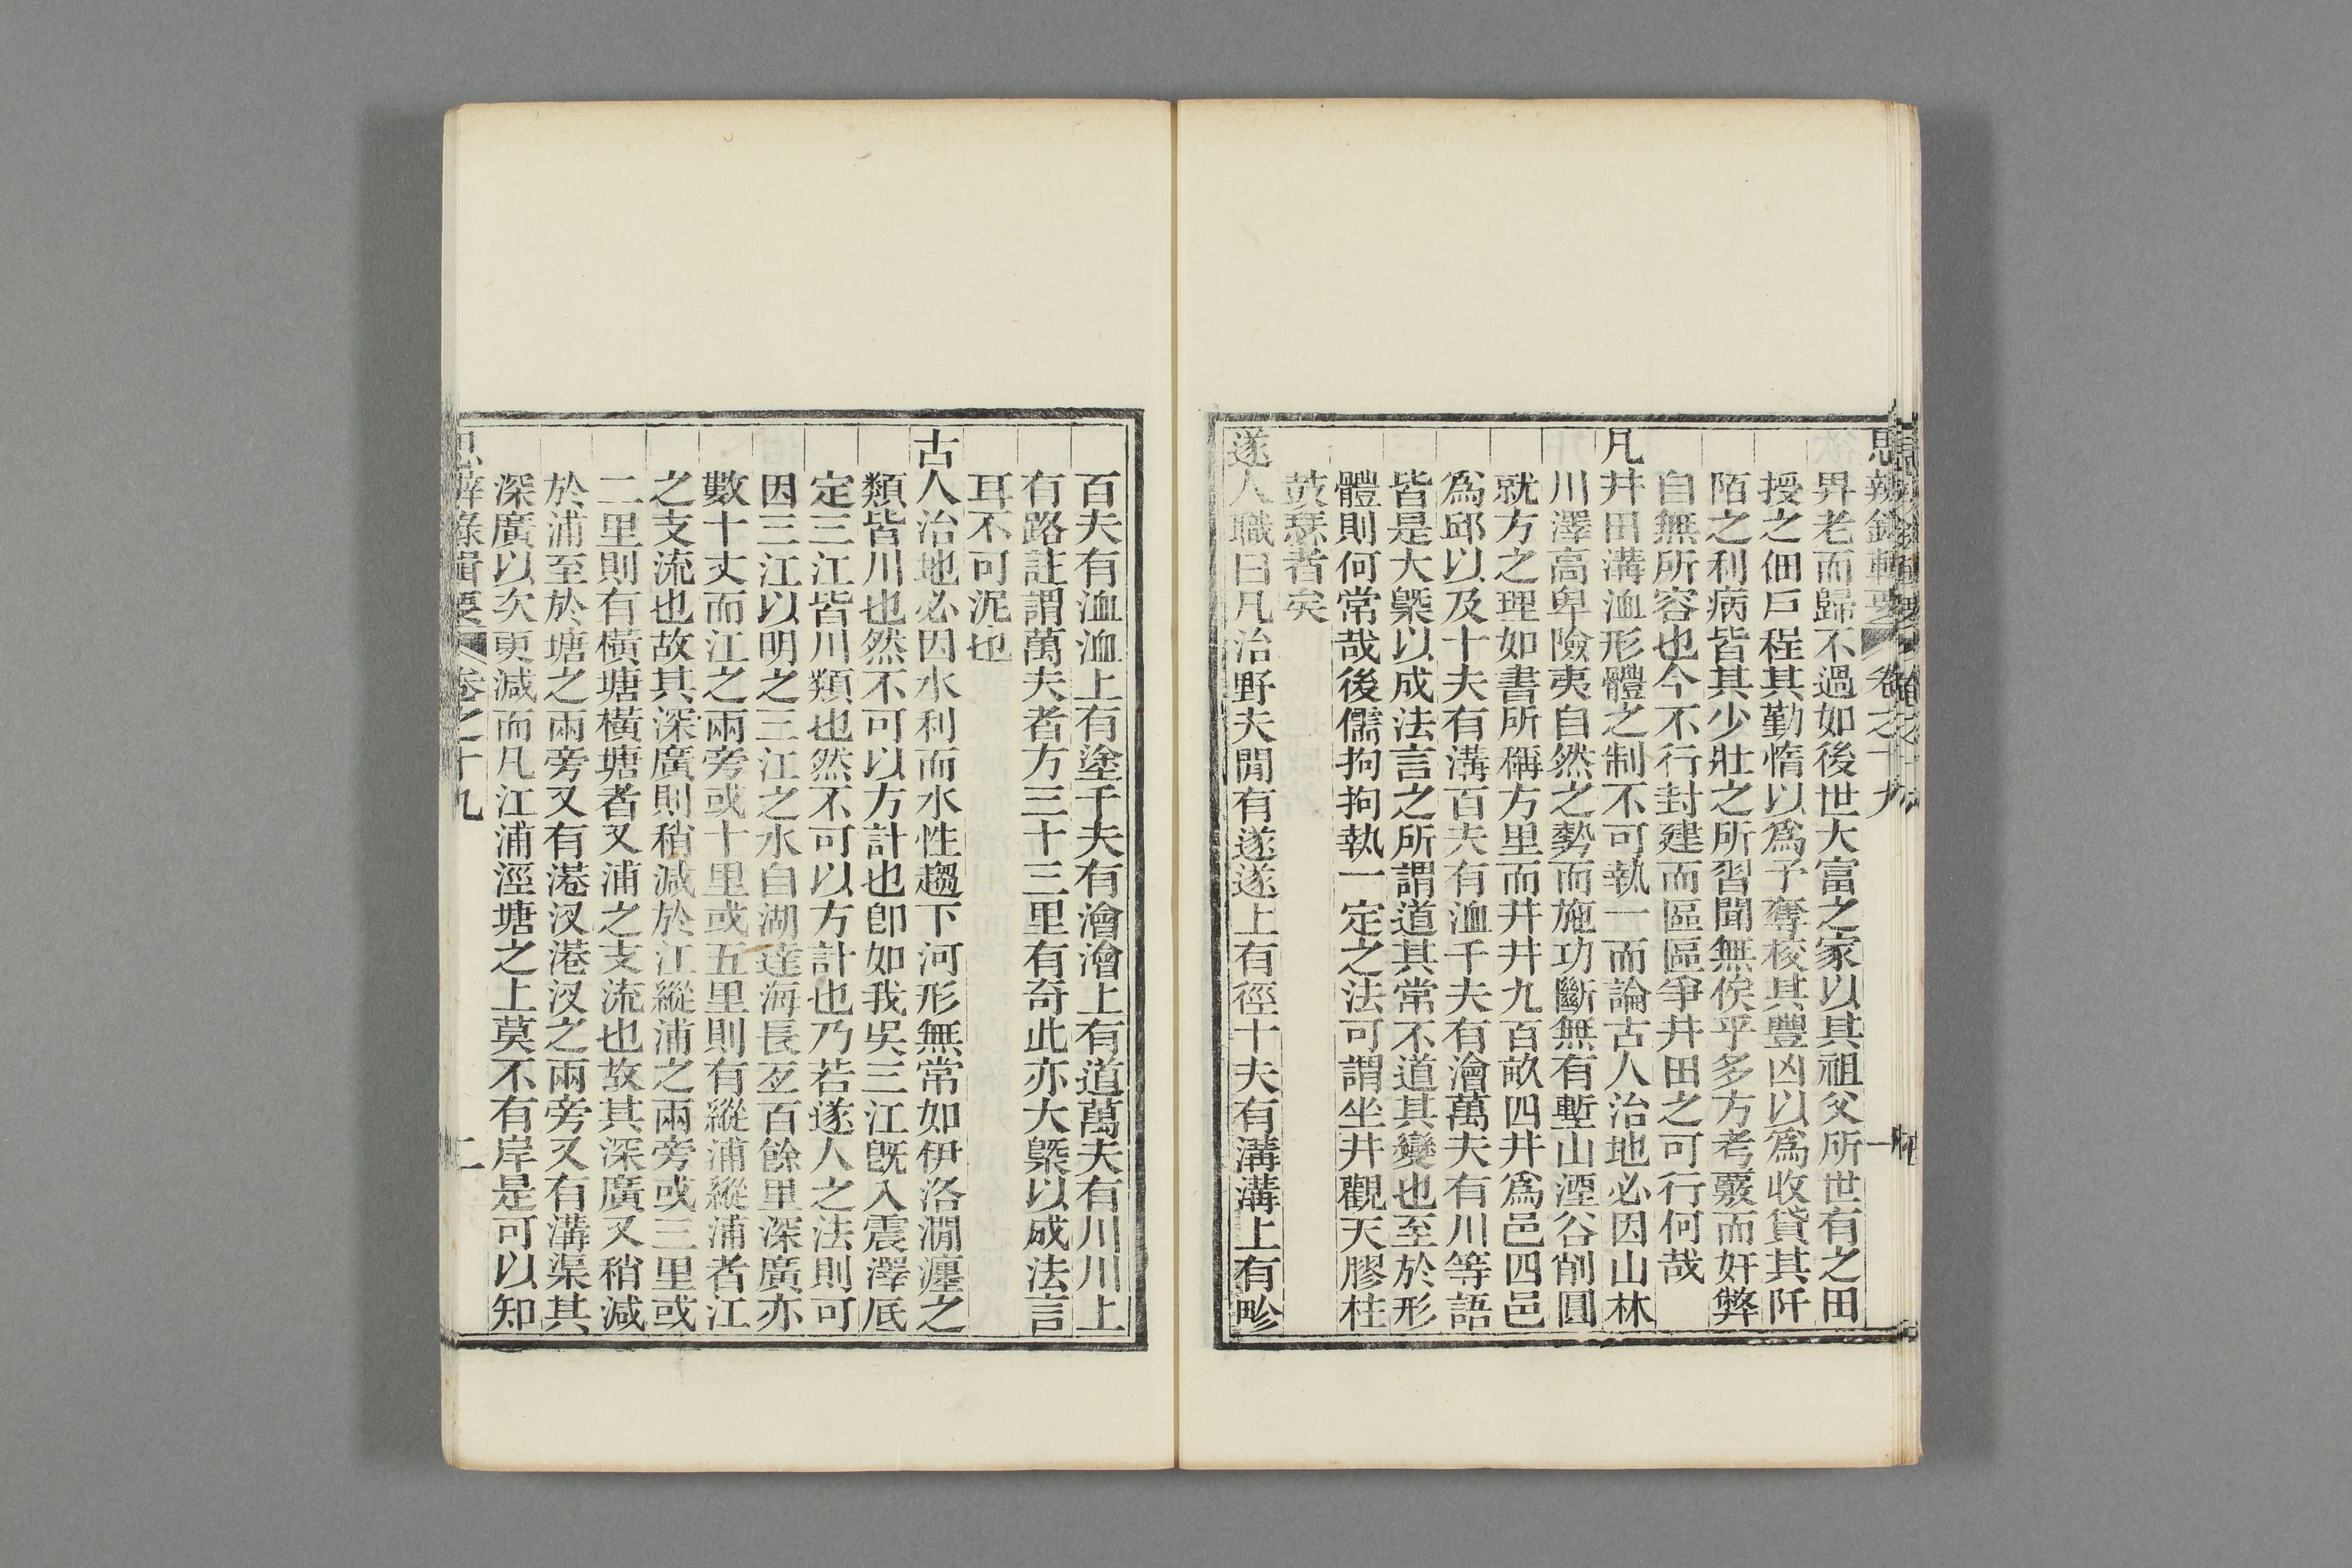 思辨錄輯要 卷之十九 一
界老而歸不過如後世大富之家以其祖父所世有之田
授之佃戶程其勤惰以爲予奪校其豐凶以爲收貸其阡
陌之利病皆其少壯之所習聞無俟乎多方考覈而奸弊
自無所容也今不行封建而區區爭井田之可行何哉
凡井田溝洫形體之制不可執一而論古人治地必因山林
川澤高卑險夷自然之勢而施功斷無有塹山湮谷削圓
就方之理如書所稱方里而井井九百畝四井爲邑四邑
爲邱以及十夫有溝百夫有洫千夫有澮萬夫有川等語
皆是大槩以成法言之所謂道其常不道其變也至於形
體則何常哉後儒拘拘執一定之法可謂坐井觀天膠柱
鼓瑟者矣
遂人職曰凡治野夫閒有遂遂上有徑十夫有溝溝上有畛
百夫有洫洫上有塗千夫有澮澮上有道萬夫有川川上
有路註謂萬夫者方三十三里有奇此亦大槩以成法言
耳不可泥也
古人治地必因水利而水性趨下河形無常如伊洛澗瀍之
類皆川也然不可以方計也卽如我吳三江旣入震澤底
定三江皆川類也然不可以方計也乃若遂人之法則可
因三江以明之三江之水自湖達海長亙百餘里深廣亦
數十丈而江之兩旁或十里或五里則有縱浦縱浦者江
之支流也故其深廣則稍減於江縱浦之兩旁或三里或
二里則有橫塘橫塘者又浦之支流也故其深廣又稍減
於浦至於塘之兩旁又有港汊港汊之兩旁又有溝渠其
深廣以次更減而凡江浦涇塘之上莫不有岸是可以知
思辨錄輯要 卷之十九 二